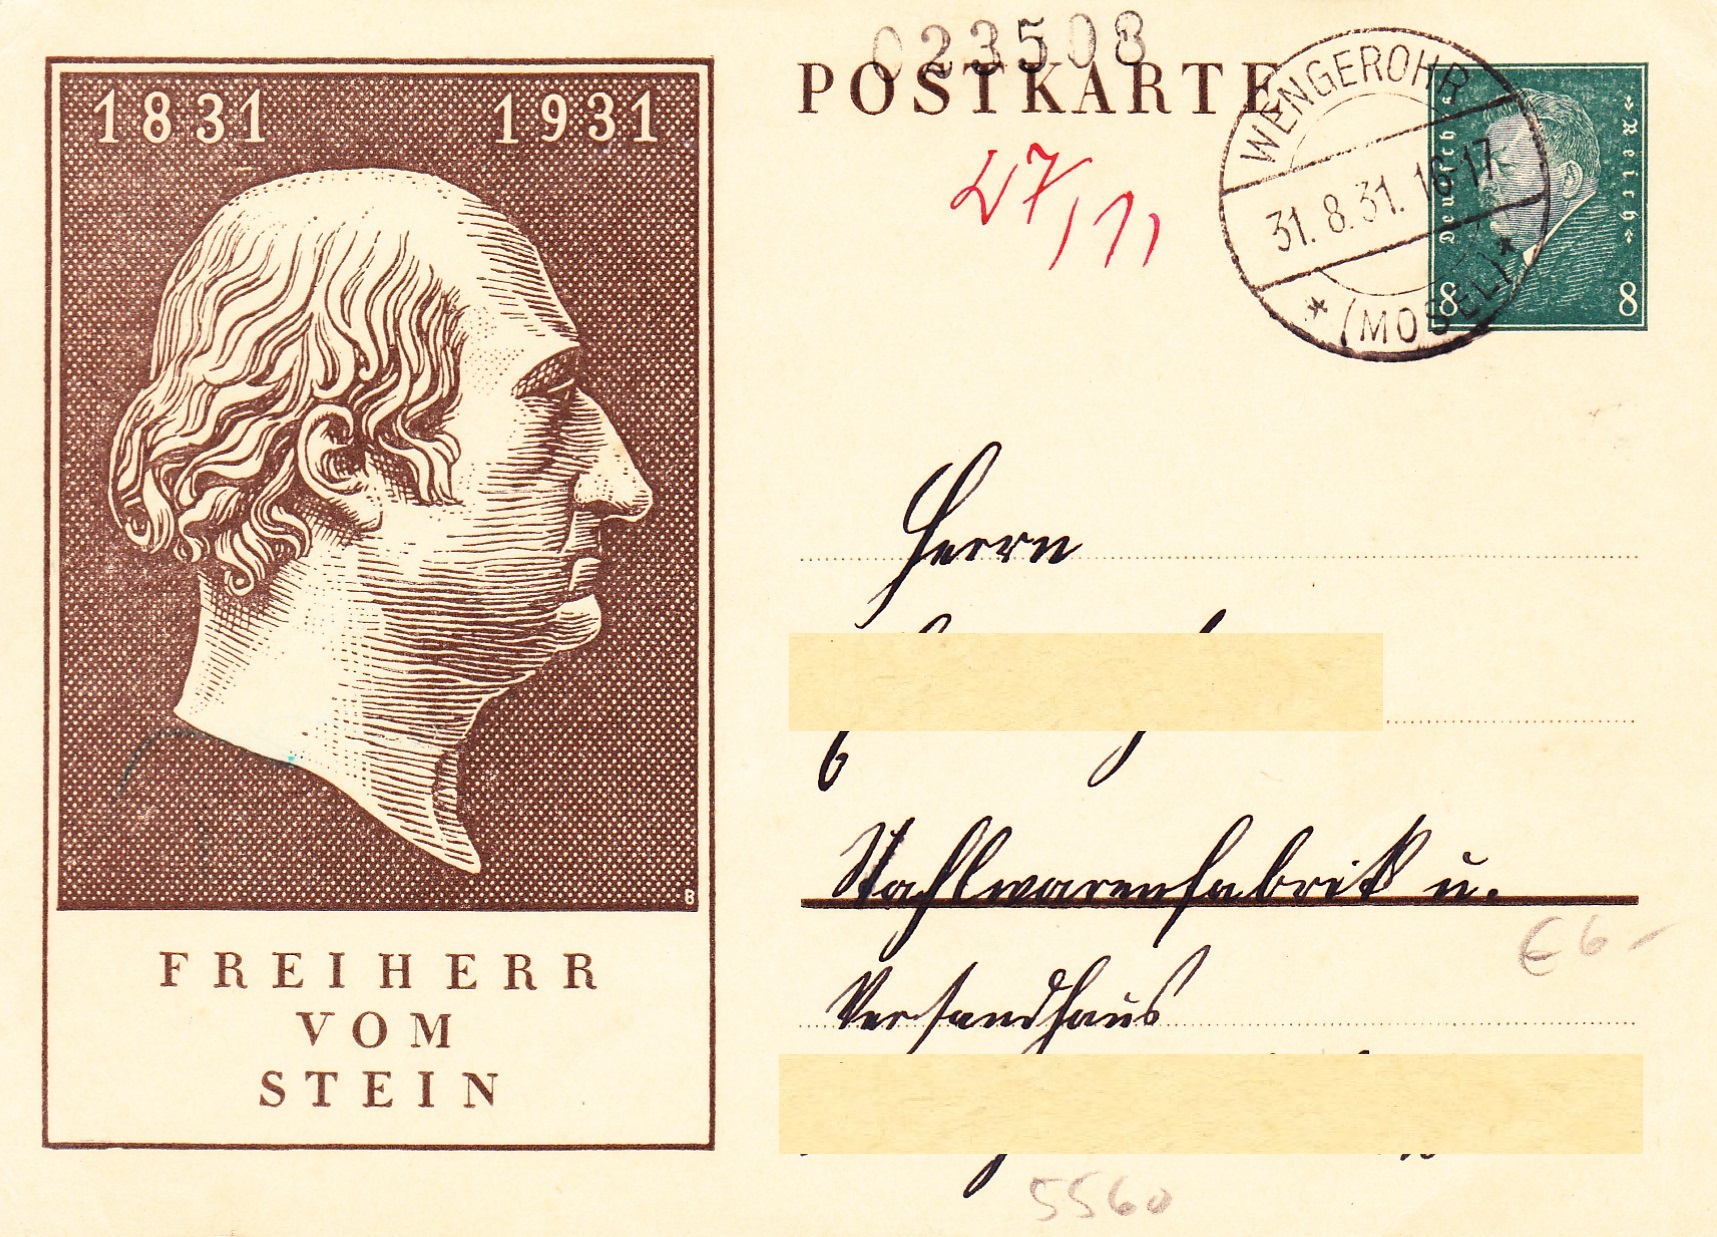 1831 1931
B
FREIHERR
VOM
STEIN
023508
POSTKARTE
27/11
WENGEROHR
31. 8. 31. 16-17
* (MOSEL) *
»Deutsches
Reich«
8 8
Herrn
Stahlwarenfabrik u.
Versandhaus
€ 6 -
5560